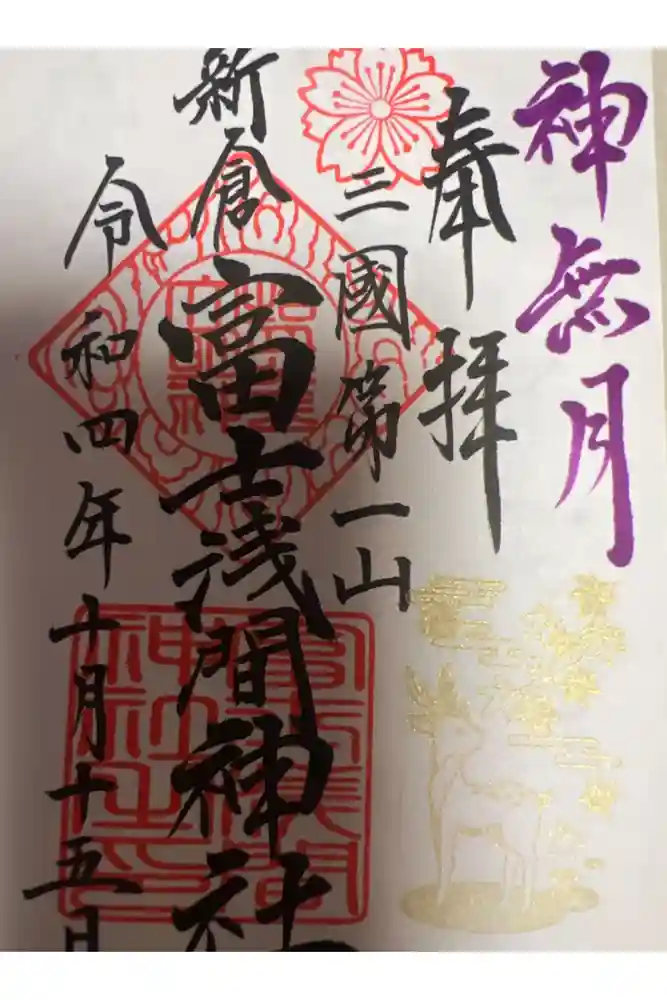 神無月
奉拝
三國第一山
新倉富士浅間神社
令和四年十月十五日